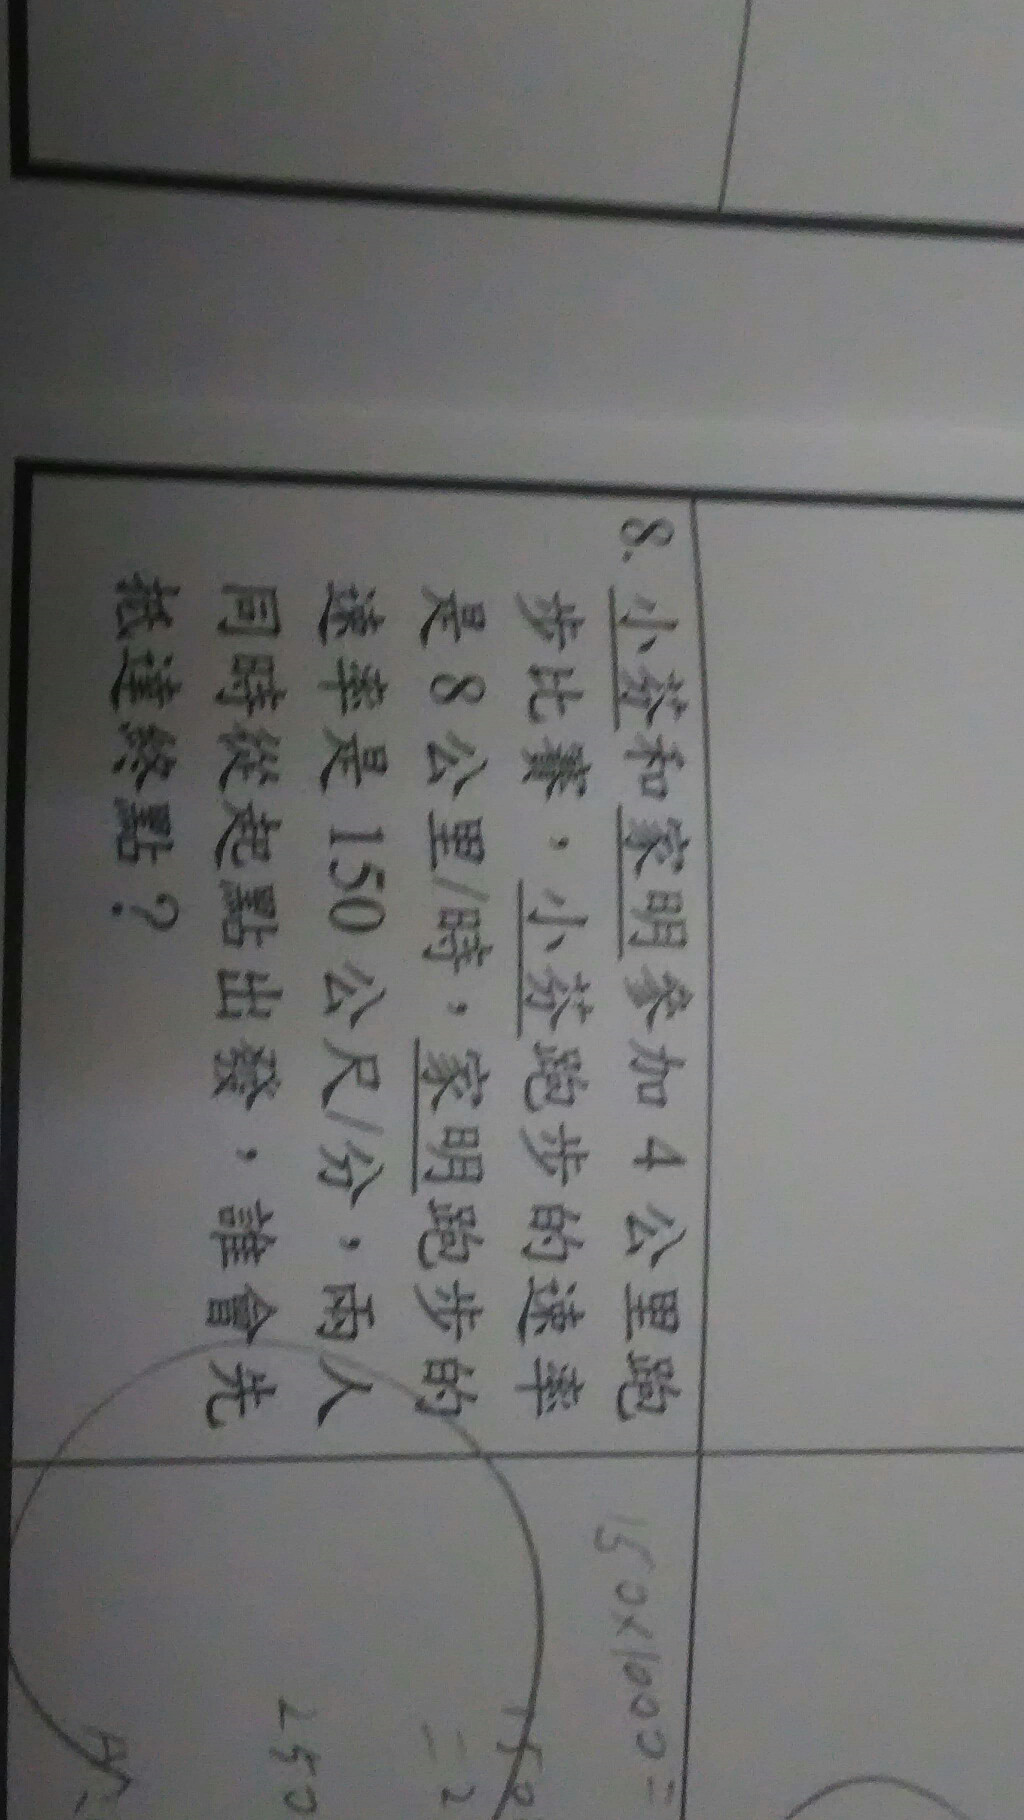 8. 小芬和家明參加 4 公里跑
步比賽，小芬跑步的速率
是 8 公里/時，家明跑步的
速率是 150 公尺/分，兩人
同時從起點出發，誰會先
抵達終點？
150×1000=
150
=2
250